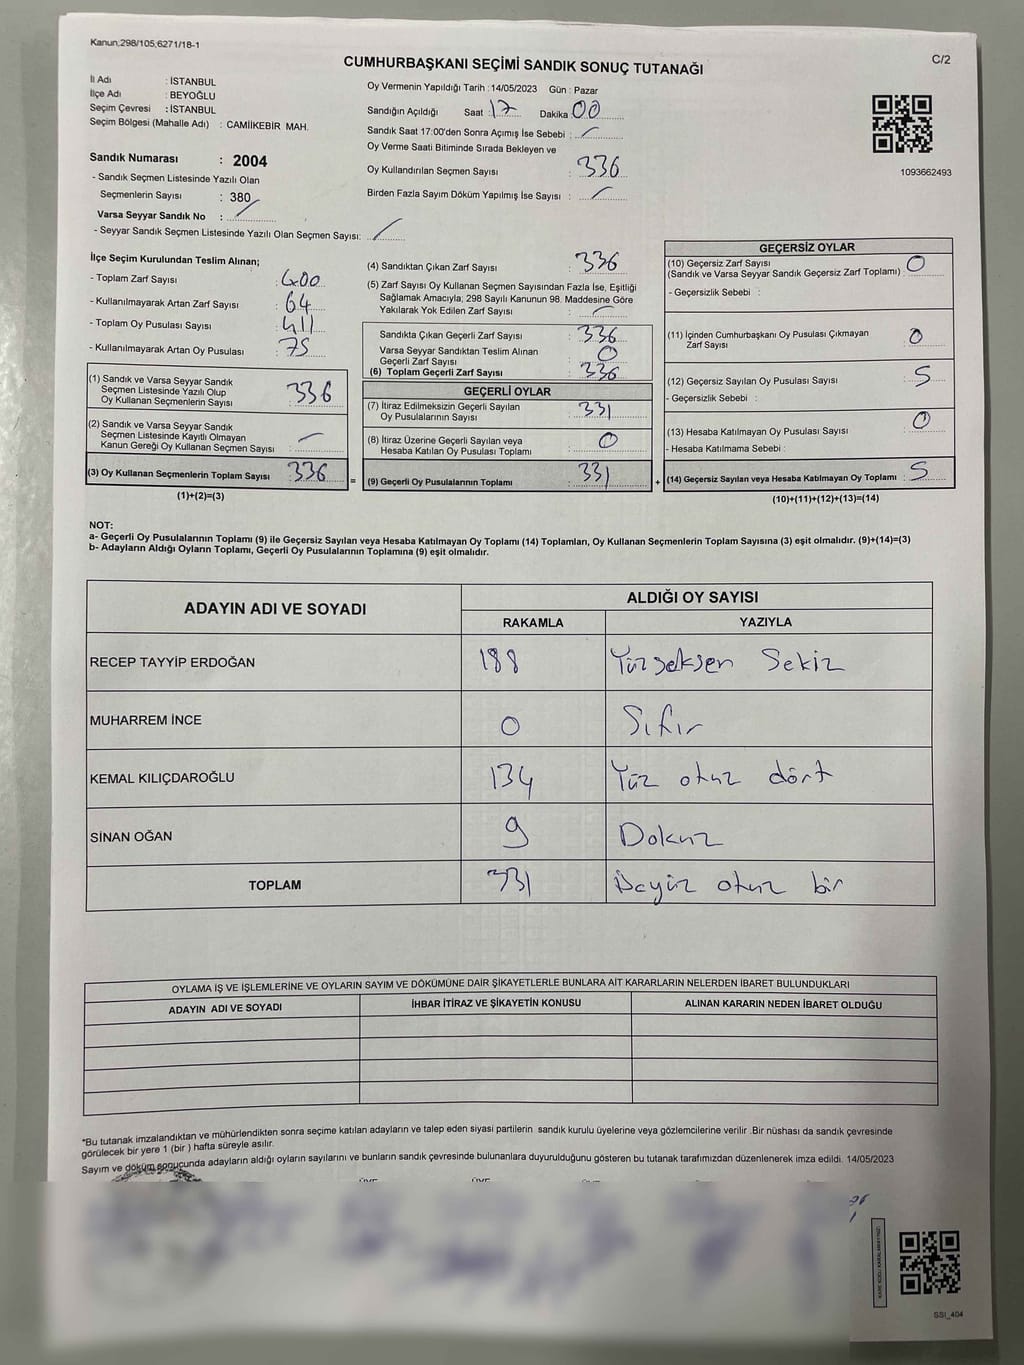 Kanun;298/105,6271/18-1
C/2
CUMHURBAŞKANI SEÇİMİ SANDIK SONUÇ TUTANAĞI
İl Adı : İSTANBUL
İlçe Adı : BEYOĞLU
Seçim Çevresi : İSTANBUL
Seçim Bölgesi (Mahalle Adı) : CAMİİKEBİR MAH.
Sandık Numarası : 2004
- Sandık Seçmen Listesinde Yazılı Olan
Seçmenlerin Sayısı : 380
Varsa Seyyar Sandık No :
- Seyyar Sandık Seçmen Listesinde Yazılı Olan Seçmen Sayısı:
Oy Vermenin Yapıldığı Tarih : 14/05/2023 Gün : Pazar
Sandığın Açıldığı Saat : 17 Dakika 00
Sandık Saat 17:00'den Sonra Açımış İse Sebebi :
Oy Verme Saati Bitiminde Sırada Bekleyen ve
Oy Kullandırılan Seçmen Sayısı : 336
Birden Fazla Sayım Döküm Yapılmış İse Sayısı :
1093662493
İlçe Seçim Kurulundan Teslim Alınan;
- Toplam Zarf Sayısı : 400
- Kullanılmayarak Artan Zarf Sayısı : 64
- Toplam Oy Pusulası Sayısı : 411
- Kullanılmayarak Artan Oy Pusulası : 75
(1) Sandık ve Varsa Seyyar Sandık
Seçmen Listesinde Yazılı Olup
Oy Kullanan Seçmenlerin Sayısı : 336
(2) Sandık ve Varsa Seyyar Sandık
Seçmen Listesinde Kayıtlı Olmayan
Kanun Gereği Oy Kullanan Seçmen Sayısı :
(3) Oy Kullanan Seçmenlerin Toplam Sayısı : 336
(1)+(2)=(3)
=
(4) Sandıktan Çıkan Zarf Sayısı : 336
(5) Zarf Sayısı Oy Kullanan Seçmen Sayısından Fazla İse, Eşitliği
Sağlamak Amacıyla; 298 Sayılı Kanunun 98. Maddesine Göre
Yakılarak Yok Edilen Zarf Sayısı :
Sandıkta Çıkan Geçerli Zarf Sayısı : 336
Varsa Seyyar Sandıktan Teslim Alınan
Geçerli Zarf Sayısı : 0
(6) Toplam Geçerli Zarf Sayısı : 336
GEÇERLİ OYLAR
(7) İtiraz Edilmeksizin Geçerli Sayılan
Oy Pusulalarının Sayısı : 331
(8) İtiraz Üzerine Geçerli Sayılan veya
Hesaba Katılan Oy Pusulası Toplamı : 0
(9) Geçerli Oy Pusulalarının Toplamı : 331
+
GEÇERSİZ OYLAR
(10) Geçersiz Zarf Sayısı
(Sandık ve Varsa Seyyar Sandık Geçersiz Zarf Toplamı) : 0
- Geçersizlik Sebebi :
(11) İçinden Cumhurbaşkanı Oy Pusulası Çıkmayan
Zarf Sayısı : 0
(12) Geçersiz Sayılan Oy Pusulası Sayısı : 5
- Geçersizlik Sebebi :
(13) Hesaba Katılmayan Oy Pusulası Sayısı : 0
- Hesaba Katılmama Sebebi :
(14) Geçersiz Sayılan veya Hesaba Katılmayan Oy Toplamı : 5
(10)+(11)+(12)+(13)=(14)
NOT:
a- Geçerli Oy Pusulalarının Toplamı (9) ile Geçersiz Sayılan veya Hesaba Katılmayan Oy Toplamı (14) Toplamları, Oy Kullanan Seçmenlerin Toplam Sayısına (3) eşit olmalıdır. (9)+(14)=(3)
b- Adayların Aldığı Oyların Toplamı, Geçerli Oy Pusulalarının Toplamına (9) eşit olmalıdır.
ADAYIN ADI VE SOYADI
ALDIĞI OY SAYISI
RAKAMLA YAZIYLA
RECEP TAYYİP ERDOĞAN 188 Yüzseksen Sekiz
MUHARREM İNCE 0 Sıfır
KEMAL KILIÇDAROĞLU 134 Yüz otuz dört
SİNAN OĞAN 9 Dokuz
TOPLAM 331 otuz bir
OYLAMA İŞ VE İŞLEMLERİNE VE OYLARIN SAYIM VE DÖKÜMÜNE DAİR ŞİKAYETLERLE BUNLARA AİT KARARLARIN NELERDEN İBARET BULUNDUKLARI
ADAYIN ADI VE SOYADI İHBAR İTİRAZ VE ŞİKAYETİN KONUSU ALINAN KARARIN NEDEN İBARET OLDUĞU
*Bu tutanak imzalandıktan ve mühürlendikten sonra seçime katılan adayların ve talep eden siyasi partilerin sandık kurulu üyelerine veya gözlemcilerine verilir .Bir nüshası da sandık çevresinde
görülecek bir yere 1 (bir ) hafta süreyle asılır.
Sayım ve döküm sonucunda adayların aldığı oyların sayılarını ve bunların sandık çevresinde bulunanlara duyurulduğunu gösteren bu tutanak tarafımızdan düzenlenerek imza edildi. 14/05/2023
SSI_404